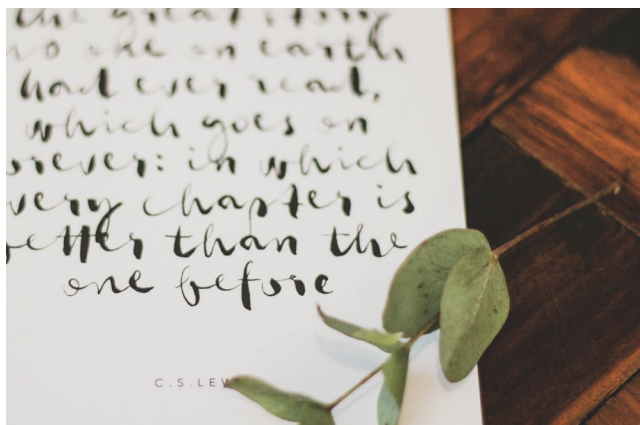 the great story
no one on earth
had ever read,
which goes on
orever: in which
very chapter is
etter than the
one before
C.S.LEW